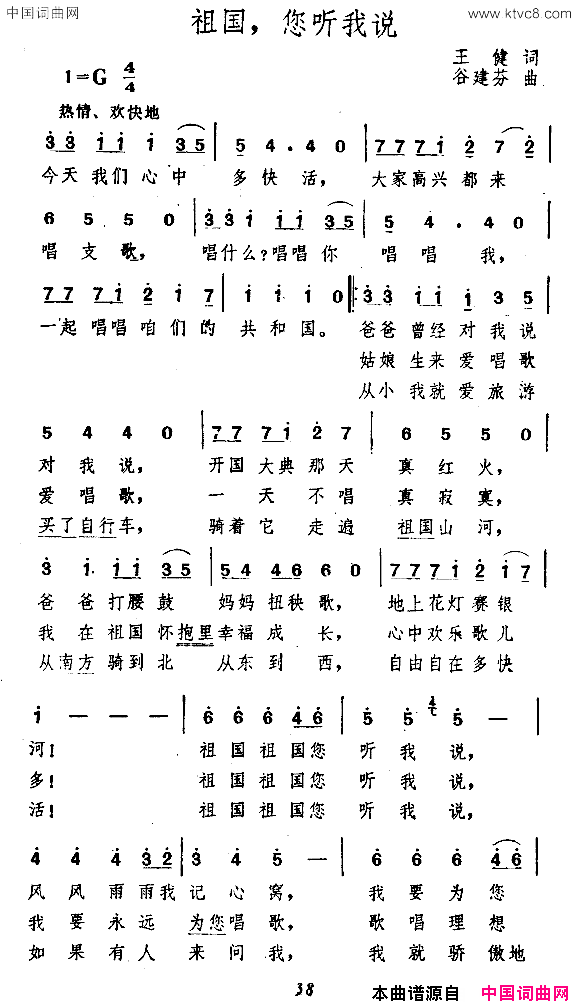 中国词曲网
www.ktvc8.com
祖国，您听我说
王 健 词
1=G 4/4
谷建芬 曲
热情、欢快地
3 3 1 1 1 3 5 | 5 4 . 4 0 | 7 7 7 1 2 7 2 |
今天 我们 心 中 多 快 活， 大家 高兴 都 来
6 5 5 0 | 3 3 1 1 1 3 5 | 5 4 . 4 0 |
唱 支 歌， 唱什么？唱唱 你 唱 唱 我，
7 7 7 7 1 2 1 7 | 1 1 1 0 |: 3 3 1 1 1 3 5 |
一起 唱唱 咱 们 的 共 和 国。 爸爸 曾经 对 我 说
姑娘 生来 爱 唱 歌
从小 我就 爱 旅 游
5 4 4 0 | 7 7 7 1 2 7 | 6 5 5 0 |
对 我 说， 开国 大典 那 天 真 红 火，
爱 唱 歌， 一 天 不 唱 真 寂 寞，
买了自行车， 骑着 它 走 遍 祖国 山 河，
3 1 . 1 1 3 5 | 5 4 4 6 6 0 | 7 7 7 1 2 1 7 |
爸 爸 打腰 鼓 妈妈 扭秧 歌， 地上 花灯 赛 银
我 在 祖国 怀抱里 幸福 成 长， 心中 欢乐 歌 儿
从南方 骑到 北 从东 到 西， 自由 自在 多 快
1 — — — | 6 6 6 4 6 | 5 5 5 — |
河！ 祖国祖国您 听 我 说，
多！ 祖国祖国您 听 我 说，
活！ 祖国祖国您 听 我 说，
4 4 4 3 2 | 3 4 5 — | 6 6 6 4 6 |
风 风 雨 雨我 记 心 窝， 我 要 为 您
我 要 永 远 为您唱 歌， 歌 唱 理 想
如 果 有 人 来 问 我， 我 就 骄 傲地
38
本曲谱源自 中国词曲网